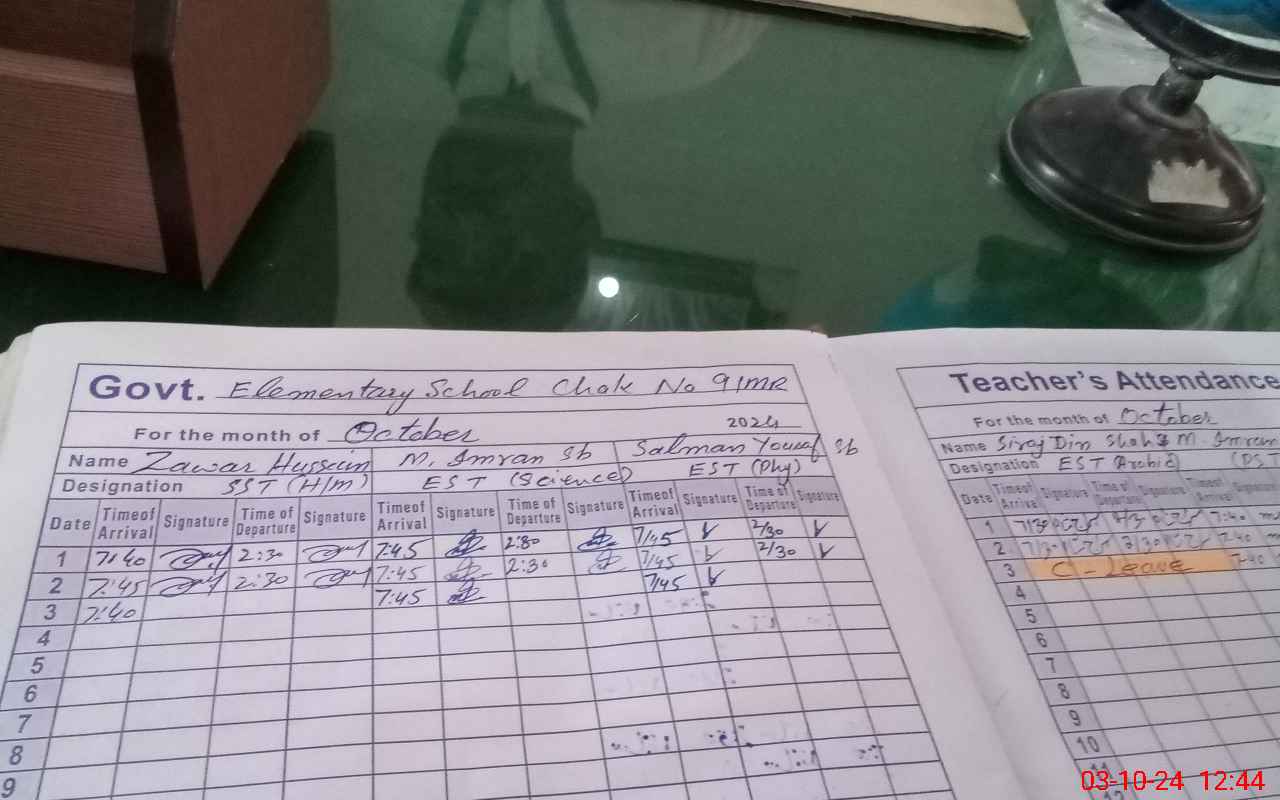 Govt. Elementary School Chak No 9/MR
For the month of October 2024
Name Zawar Hussain M. Imran Sb Salman Yousaf Sb
Designation SST (H/M) EST (Science) EST (Phy)
Date Time of Arrival Signature Time of Departure Signature Time of Arrival Signature Time of Departure Signature Time of Arrival Signature Time of Departure Signature
1 7:40 2:30 7:45 2:30 7/45 2/30
2 7:45 2:30 7:45 2:30 7/45 2/30
3 7:40 7:45 7/45
4
5
6
7
8
9
Teacher's Attendance
For the month of October
Name Siraj Din Shah M. Imran
Designation EST (Arabic)
Date Time of Arrival Signature Time of Departure Signature Time of Arrival Signature
1 7/30 7:40
2 7/30 2/30 7:40
3 C-Leave 7:40
4
5
6
7
8
9
10
11
12
03-10-24 12:44